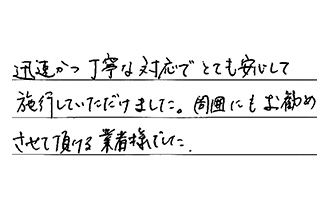 迅速かつ丁寧な対応でとても安心して
施行していただけました。周囲にもお勧め
させて頂ける業者様でした.